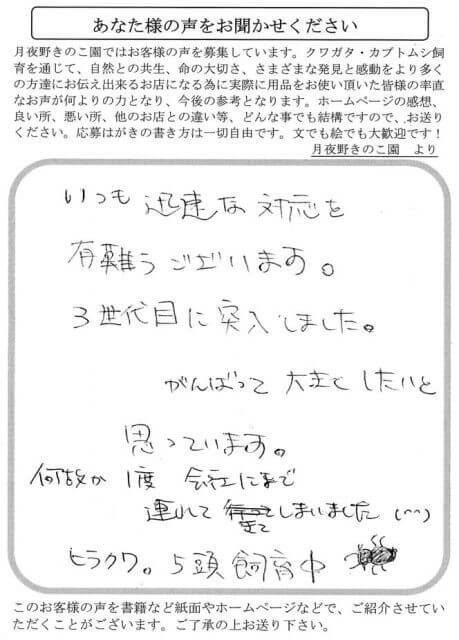 あなた様の声をお聞かせください
月夜野きのこ園ではお客様の声を募集しています。クワガタ・カブトムシ飼
育を通じて、自然との共生、命の大切さ、さまざまな発見と感動をより多く
の方達にお伝え出来るお店になる為に実際に用品をお使い頂いた皆様の率直
なお声が何よりの力となり、今後の参考となります。ホームページの感想、
良い所、悪い所、他のお店との違い等、どんな事でも結構ですので、お送り
ください。応募はがきの書き方は一切自由です。文でも絵でも大歓迎です！
月夜野きのこ園　より
いつも 迅速な 対応を
有難うございます。
3世代目に突入しました。
がんばって 大きくしたいと
思っています。
何故か 1度 会社にまで
連れて きてしまいました (^^)
ヒラクワ。5頭飼育中
このお客様の声を書籍など紙面やホームページなどで、ご紹介させていた
だくことがございます。ご了承の上お送り下さい。